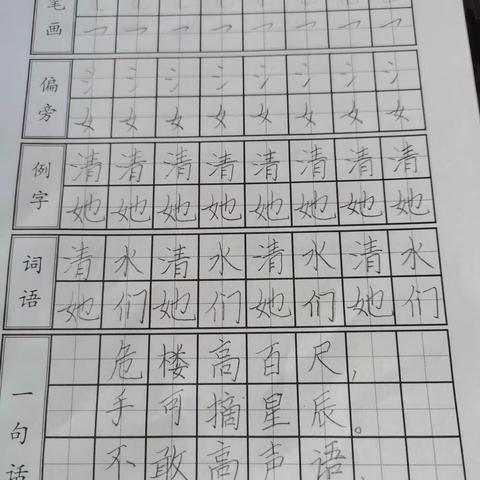 笔画
偏旁 氵氵氵氵氵氵氵氵
女女女女女女女女
例字 清清清清清清清清
她她她她她她她她
词语 清水清水清水清水
她们她们她们她们
一句话 危楼高百尺，
手可摘星辰。
不敢高声语，